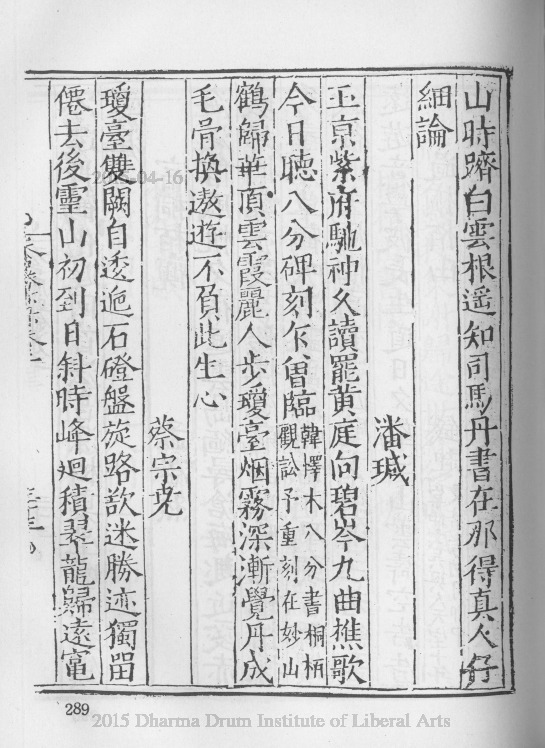 山時躋白雲根遥知司馬丹書在那得真人仔
細論
潘瑊
玉京紫府馳神久讀罷黃庭向碧岑九曲樵歌
今日聴八分碑刻尓曾臨韓懌木八分書桐栢
觀訟予重刻在妙山
鶴歸華頂雲霞麗人步瓊臺烟霧深漸覺丹成
毛骨換遨遊不負此生心
蔡宗兗
瓊臺雙闕自逶迤石磴盤旋路欲迷勝迹獨畱
僊去後靈山初到日斜時峰廻積翠龍歸遠
289
2015 Dharma Drum Institute of Liberal Arts